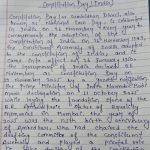 Constitution Day (India)
Constitution Day (or Samvidhan Divas), also
known as National Law Day, is celebrated
in India on 26 November every year to
commemorate the adoption of the
Constitution of India. On 26 November
the Constituent Assembly of India adopted
the Constitution of India, and it
came into effect on 26 January 1950.
The Government of India declared 26
November as Constitution Day on
19 November 2015 by a gazette notification
The Prime Minister of India Narendra Modi
made declaration on 11 October
while laying the foundation stone of the
B.R. Ambedkar's Statue of Equality
Memorial in Mumbai. The year of
2021 was the 131th birth anniversary
of Ambedkar, who had chaired the
drafting committee of the Constituent
Assembly and played a pivotal role